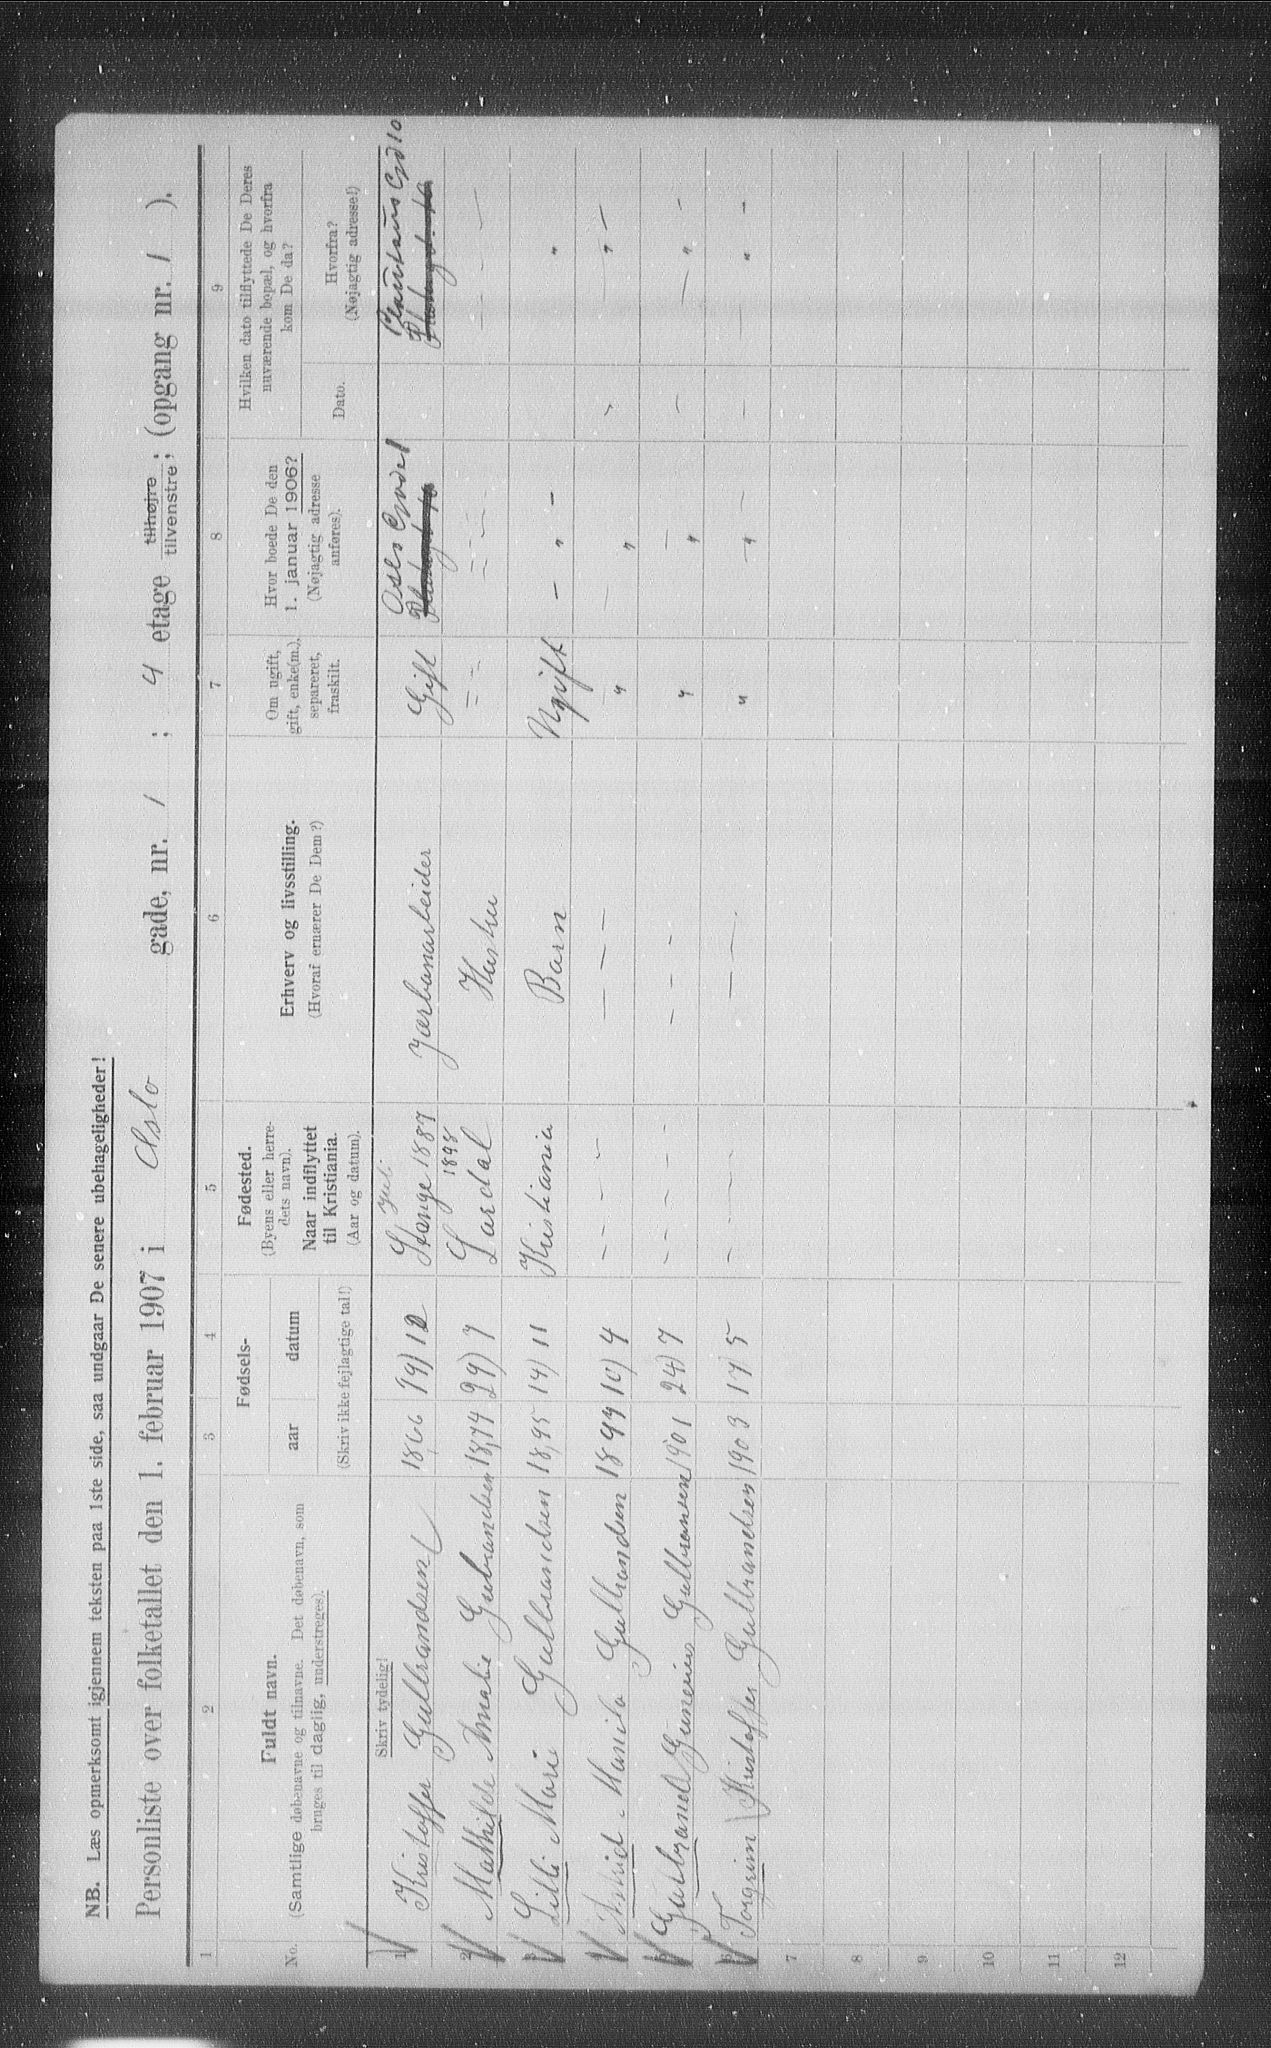 NB. Læs opmerksomt igjennem teksten paa 1ste side, saa undgaar De senere ubehageligheder!
Personliste over folketallet den 1. februar 1907 i Oslo gade, nr. 1 ; 4 etage tilhøjre tilvenstre ; (opgang nr. 1 ).
1 2 3 4 5 6 7 8 9
No.
Fuldt navn.
(Samtlige døbenavne og tilnavne. Det døbenavn, som
bruges til daglig, understreges).
Fødsels-
aar datum
(Skriv ikke fejlagtige tal!)
Fødested.
(Byens eller herre-
dets navn).
Naar indflyttet
til Kristiania.
(Aar og datum).
Erhverv og livsstilling.
(Hvoraf ernærer De Dem?)
Om ugift,
gift, enke(m.),
separeret,
fraskilt.
Hvor boede De den
1. januar 1906?
(Nøjagtig adresse
anføres).
Hvilken dato tilflyttede De Deres
nuværende bopæl, og hvorfra
kom De da?
Dato.
Hvorfra?
(Nøjagtig adresse!)
Skriv tydelig!
1 Kristoffer Gulbrandsen 1866 19/12 Stange Juli 1887 Jærbanarbeider Gift Oslo Gade 1
2 Mathilde Amalie Gulbrandsen 1874 29/7 Lardal 1898 Hustru = - = = - - - -
3 Lilli Marie Gulbrandsen 1895 14/11 Kristiania Barn Ugift - " - "
4 Astrid Gulbrandsen 1899 10/4 - - - - - - - " - " " -
5 Gulbrand Gulbransen 1901 24/7 - - - - - - - " - " - - " -
6 Torgrim Kristoffer Gulbrandsen 1903 17/5 - - - - - - " - " - - - " -
7
8
9
10
11
12